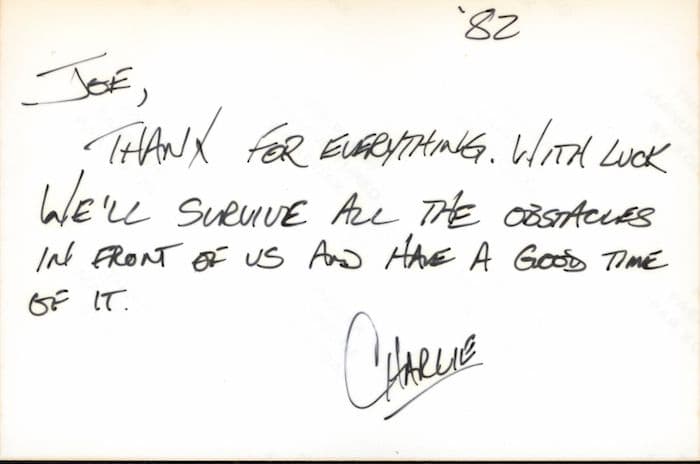 '82
JOE,
THANX FOR EVERYTHING. WITH LUCK
WE'LL SURVIVE ALL THE OBSTACLES
IN FRONT OF US AND HAVE A GOOD TIME
OF IT.
CHARLIE